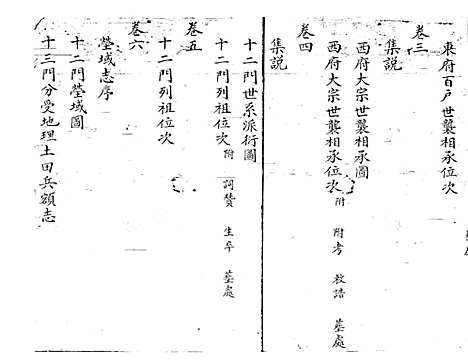 東府百戶世襲相承位次
卷三
集説
西府大宗世襲相承圖
西府大宗世襲相承位次 附 附考 敕誥 墓處
卷四
集説
十二門世系派衍圖
十二門列祖位次 附 詞贊 生卒 墓處
卷五
十二門列祖位次
卷六
塋域志序
十二門塋域圖
十三門分受地理土田兵額志